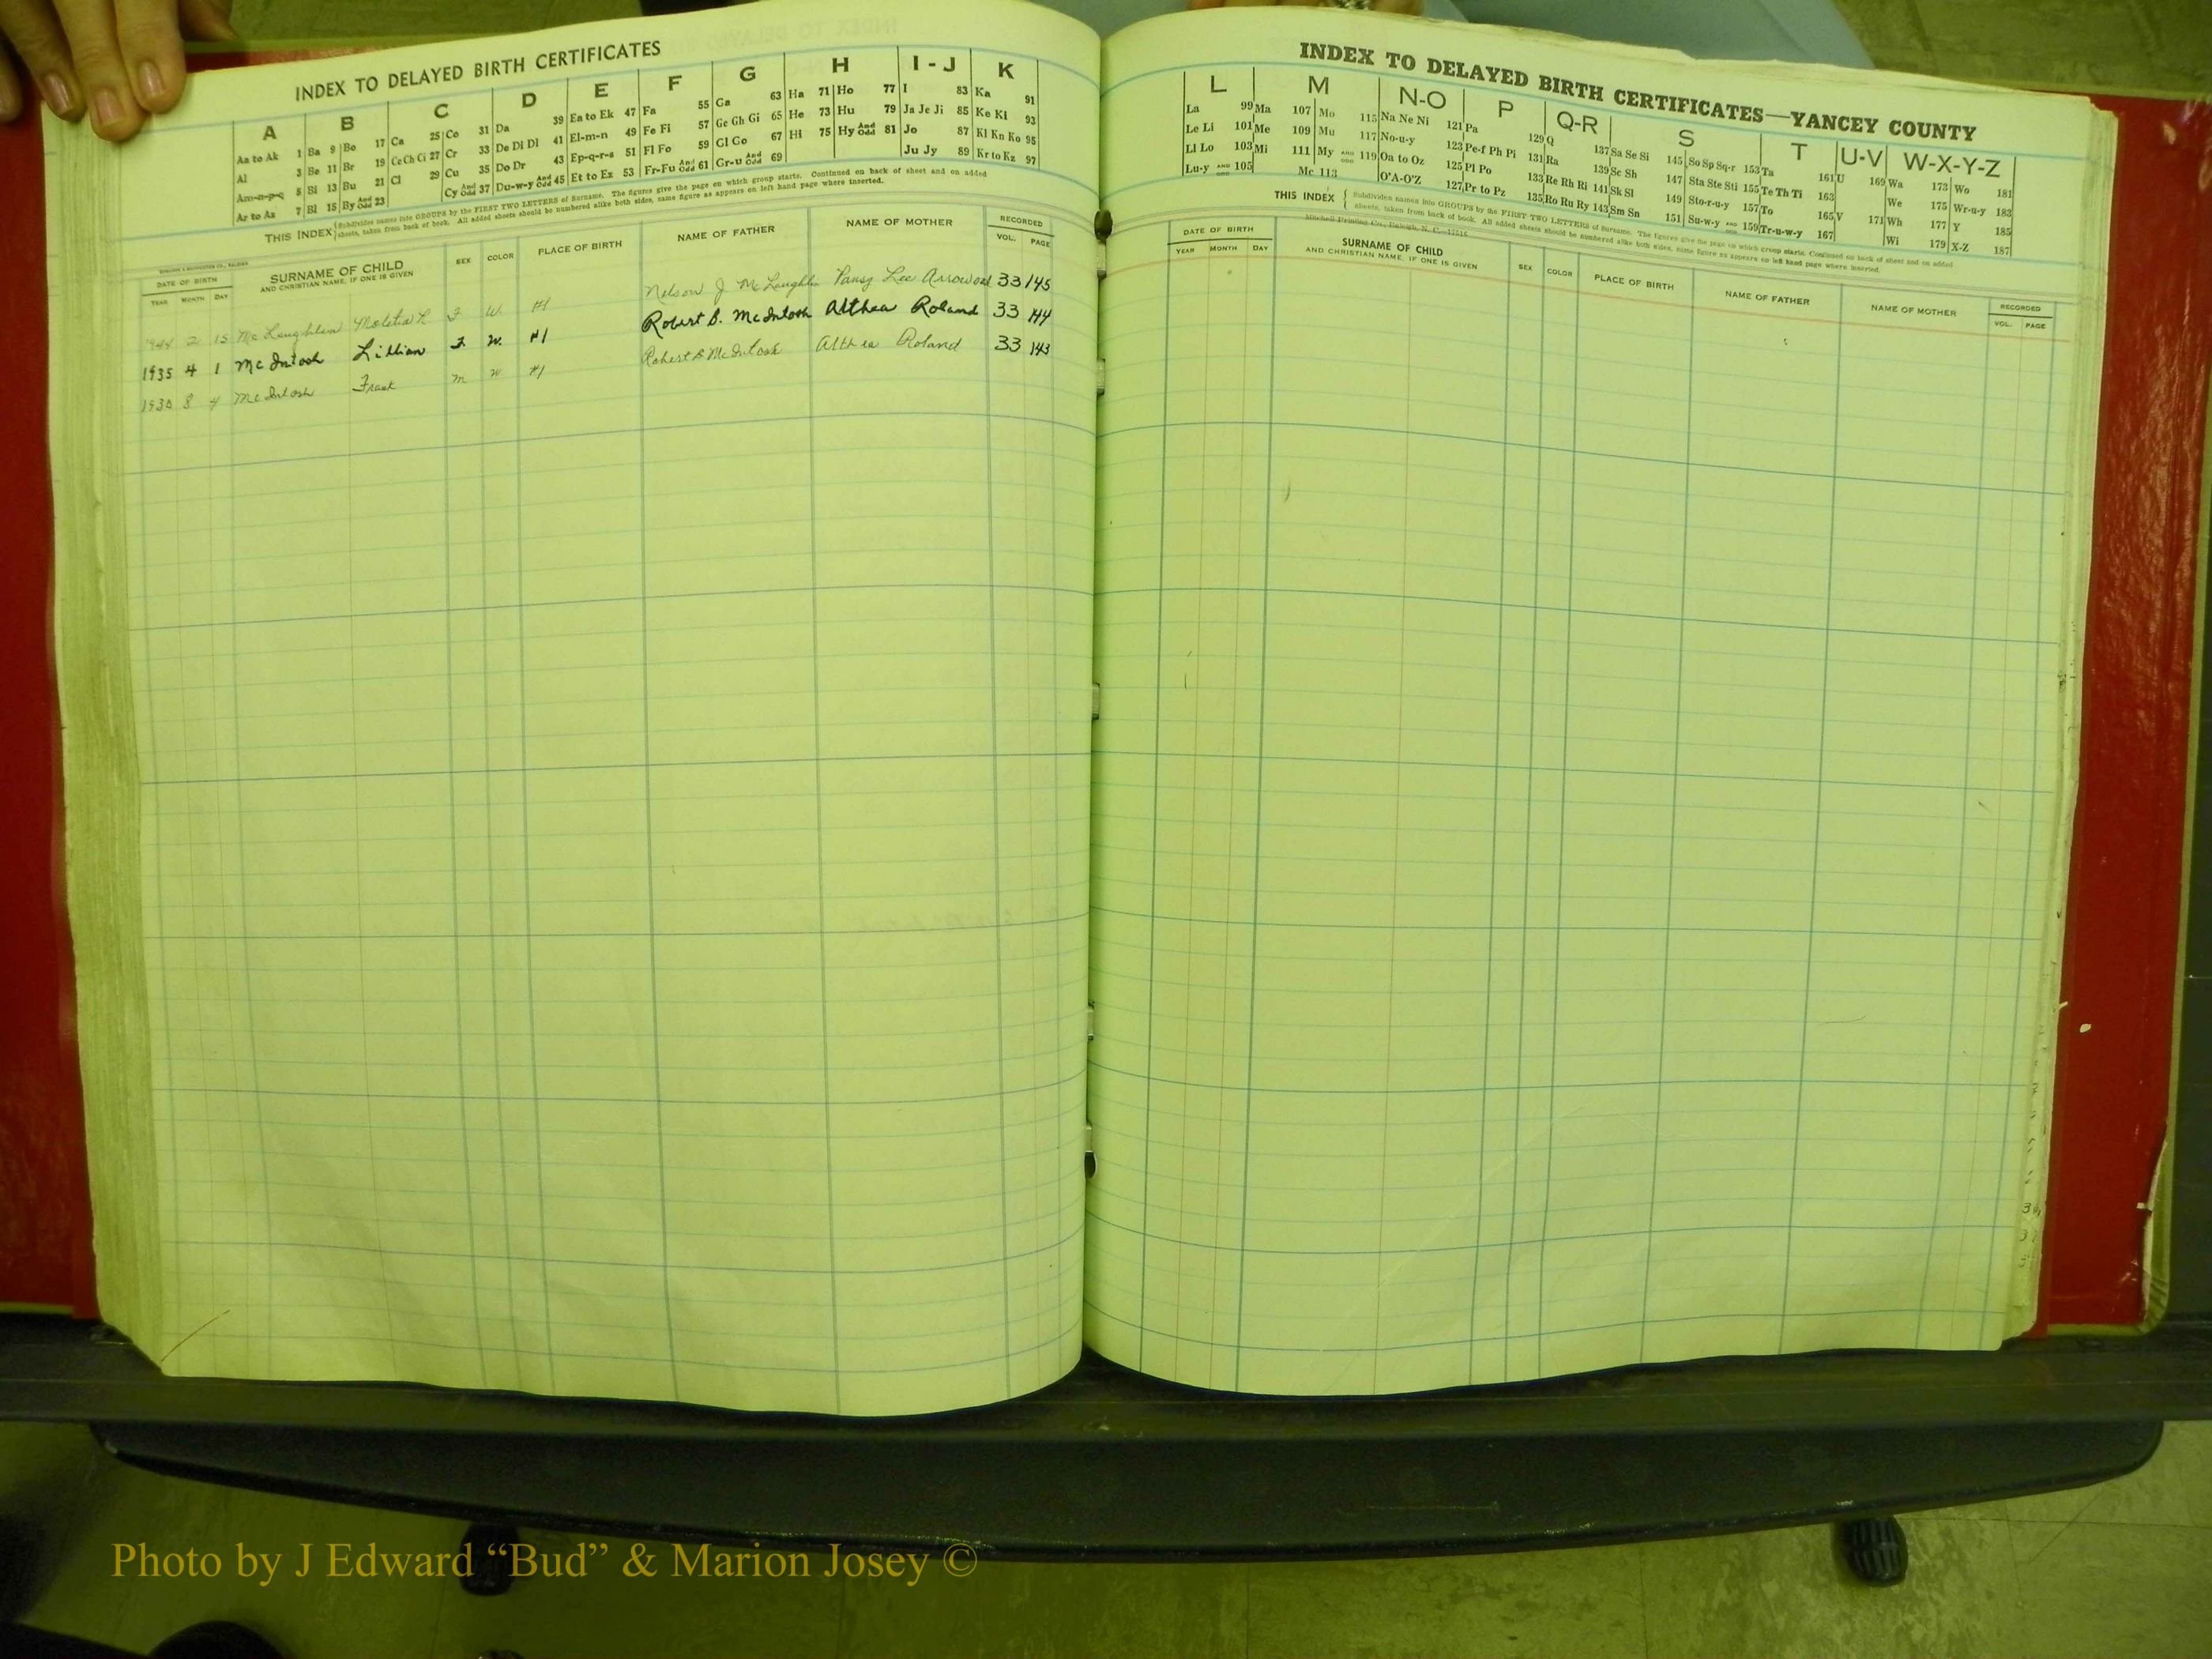 INDEX TO DELAYED BIRTH CERTIFICATES
A B C D E F G H I - J K
Aa to Ak 1 Ba 9 Bo 17 Ca 25 Co 31 Da 39 Ea to Ek 47 Fa 55 Ga 63 Ha 71 Ho 77 I 83 Ka 91
Al 3 Be 11 Br 19 Ce Ch Ci 27 Cr 33 De Di Dl 41 El-m-n 49 Fe Fi 57 Ge Gh Gi 65 He 73 Hu 79 Ja Je Ji 85 Ke Ki 93
Am-n-p-q 5 Bi 13 Bu 21 Cl 29 Cu 35 Do Dr 43 Ep-q-r-s 51 Fl Fo 59 Gl Go 67 Hi 75 Hy And Odd 81 Jo 87 Kl Kn Ko 95
Ar to Az 7 Bl 15 By And Odd 23 Cy And Odd 37 Du-w-y And Odd 45 Et to Ez 53 Fr-Fu And Odd 61 Gr-u And Odd 69 Ju Jy 89 Kr to Kz 97
THIS INDEX Subdivides names into GROUPS by the FIRST TWO LETTERS of Surname. The figures give the page on which group starts. Continued on back of sheet and on added
sheets, taken from back of book. All added sheets should be numbered alike both sides, same figure as appears on left hand page where inserted.
DATE OF BIRTH SURNAME OF CHILD SEX COLOR PLACE OF BIRTH NAME OF FATHER NAME OF MOTHER RECORDED
YEAR MONTH DAY AND CHRISTIAN NAME, IF ONE IS GIVEN VOL. PAGE
1944 2 15 McLaughlin F W #1 Nelson J McLaughlin Pansy Lee Arrowood 33 145
1935 4 1 McIntosh Lillian F W. #1 Robert B. McIntosh Althea Roland 33 144
1930 8 4 McIntosh Frank M W #1 Robert B McIntosh Althea Roland 33 143
INDEX TO DELAYED BIRTH CERTIFICATES—YANCEY COUNTY
L M N-O P Q-R S T U-V W-X-Y-Z
La 99 Ma 107 Mo 115 Na Ne Ni 121 Pa 129 Q 137 Sa Se Si 145 So Sp Sq-r 153 Ta 161 U 169 Wa 173 Wo 181
Le Li 101 Me 109 Mu 117 No-u-y 123 Pe-f Ph Pi 131 Ra 139 Sc Sh 147 Sta Ste Sti 155 Te Th Ti 163 We 175 Wr-u-y 183
Ll Lo 103 Mi 111 My AND ODD 119 Oa to Oz 125 Pl Po 133 Re Rh Ri 141 Sk Sl 149 Sto-r-u-y 157 To 165 V 171 Wh 177 Y 185
Lu-y AND ODD 105 Mc 113 O'A-O'Z 127 Pr to Pz 135 Ro Ru Ry 143 Sm Sn 151 Su-w-y AND ODD 159 Tr-u-w-y 167 Wi 179 X-Z 187
THIS INDEX Subdivides names into GROUPS by the FIRST TWO LETTERS of Surname. The figures give the page on which group starts. Continued on back of sheet and on added
sheets, taken from back of book. All added sheets should be numbered alike both sides, same figure as appears on left hand page where inserted.
Mitchell Printing Co., Raleigh, N. C.
DATE OF BIRTH SURNAME OF CHILD SEX COLOR PLACE OF BIRTH NAME OF FATHER NAME OF MOTHER RECORDED
YEAR MONTH DAY AND CHRISTIAN NAME, IF ONE IS GIVEN VOL. PAGE
Photo by J Edward “Bud” & Marion Josey ©